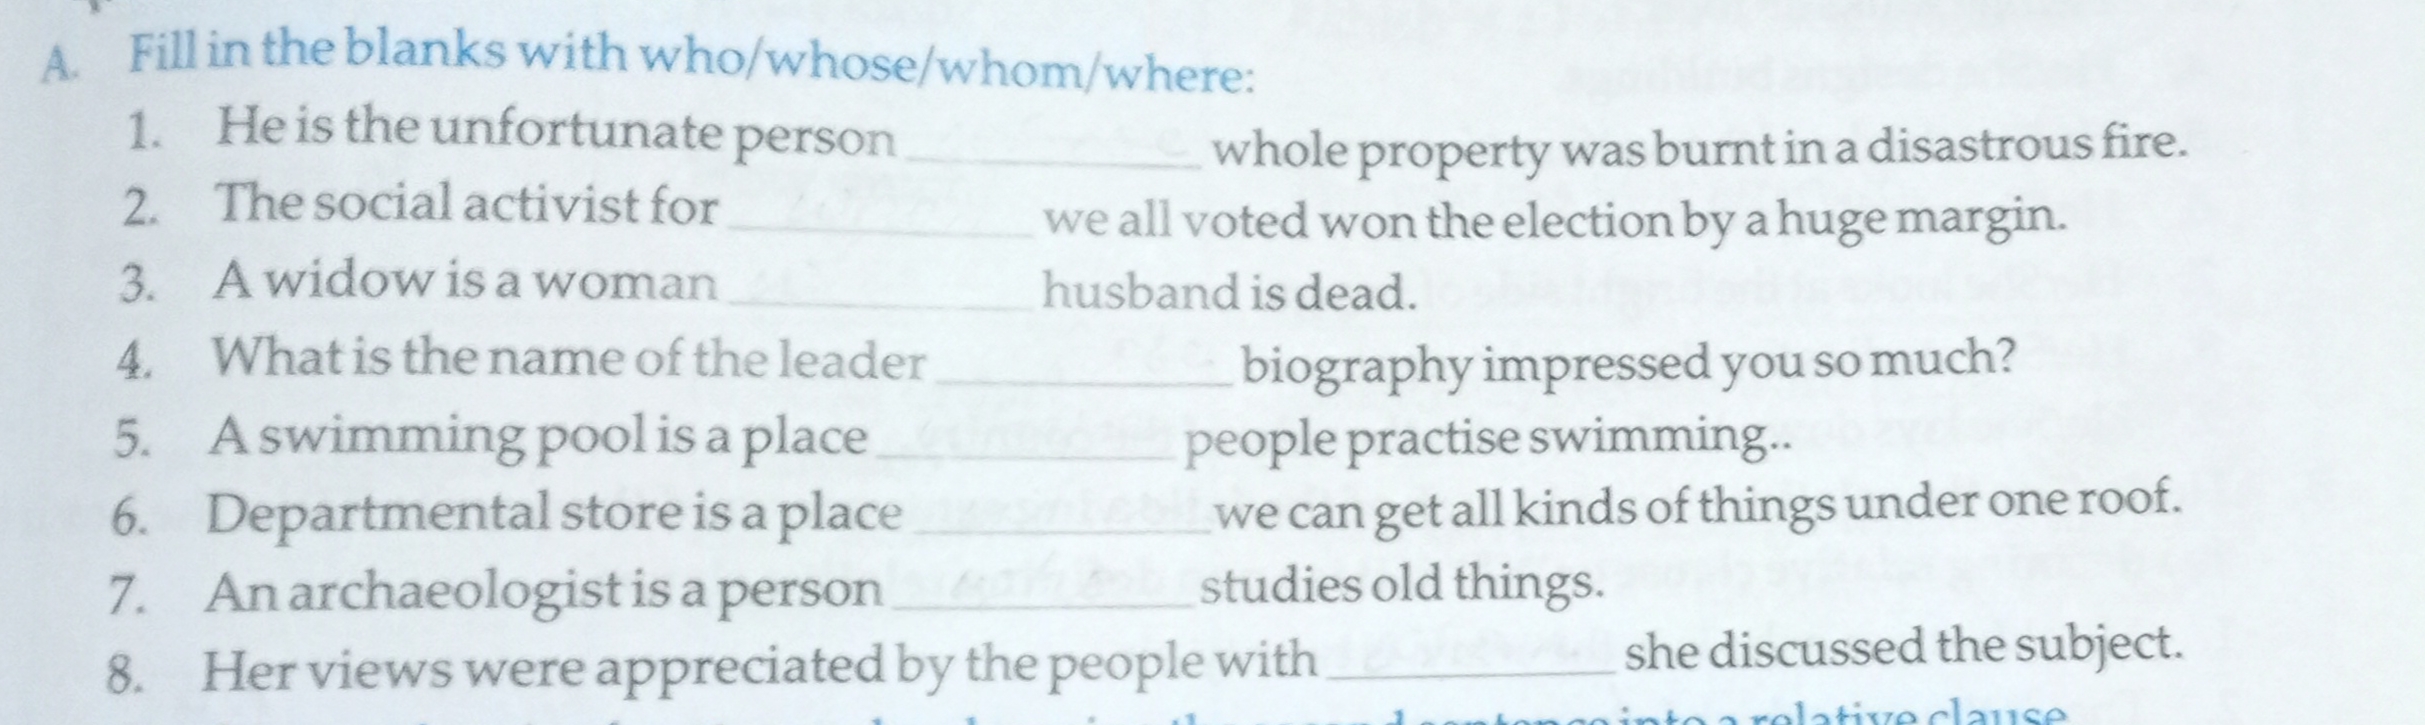 A. Fill in the blanks with who/whose/whom/where:
1. He is the unfortunate person __________ whole property was burnt in a disastrous fire.
2. The social activist for __________ we all voted won the election by a huge margin.
3. A widow is a woman __________ husband is dead.
4. What is the name of the leader __________ biography impressed you so much?
5. A swimming pool is a place __________ people practise swimming..
6. Departmental store is a place __________ we can get all kinds of things under one roof.
7. An archaeologist is a person __________ studies old things.
8. Her views were appreciated by the people with __________ she discussed the subject.
sentence into a relative clause